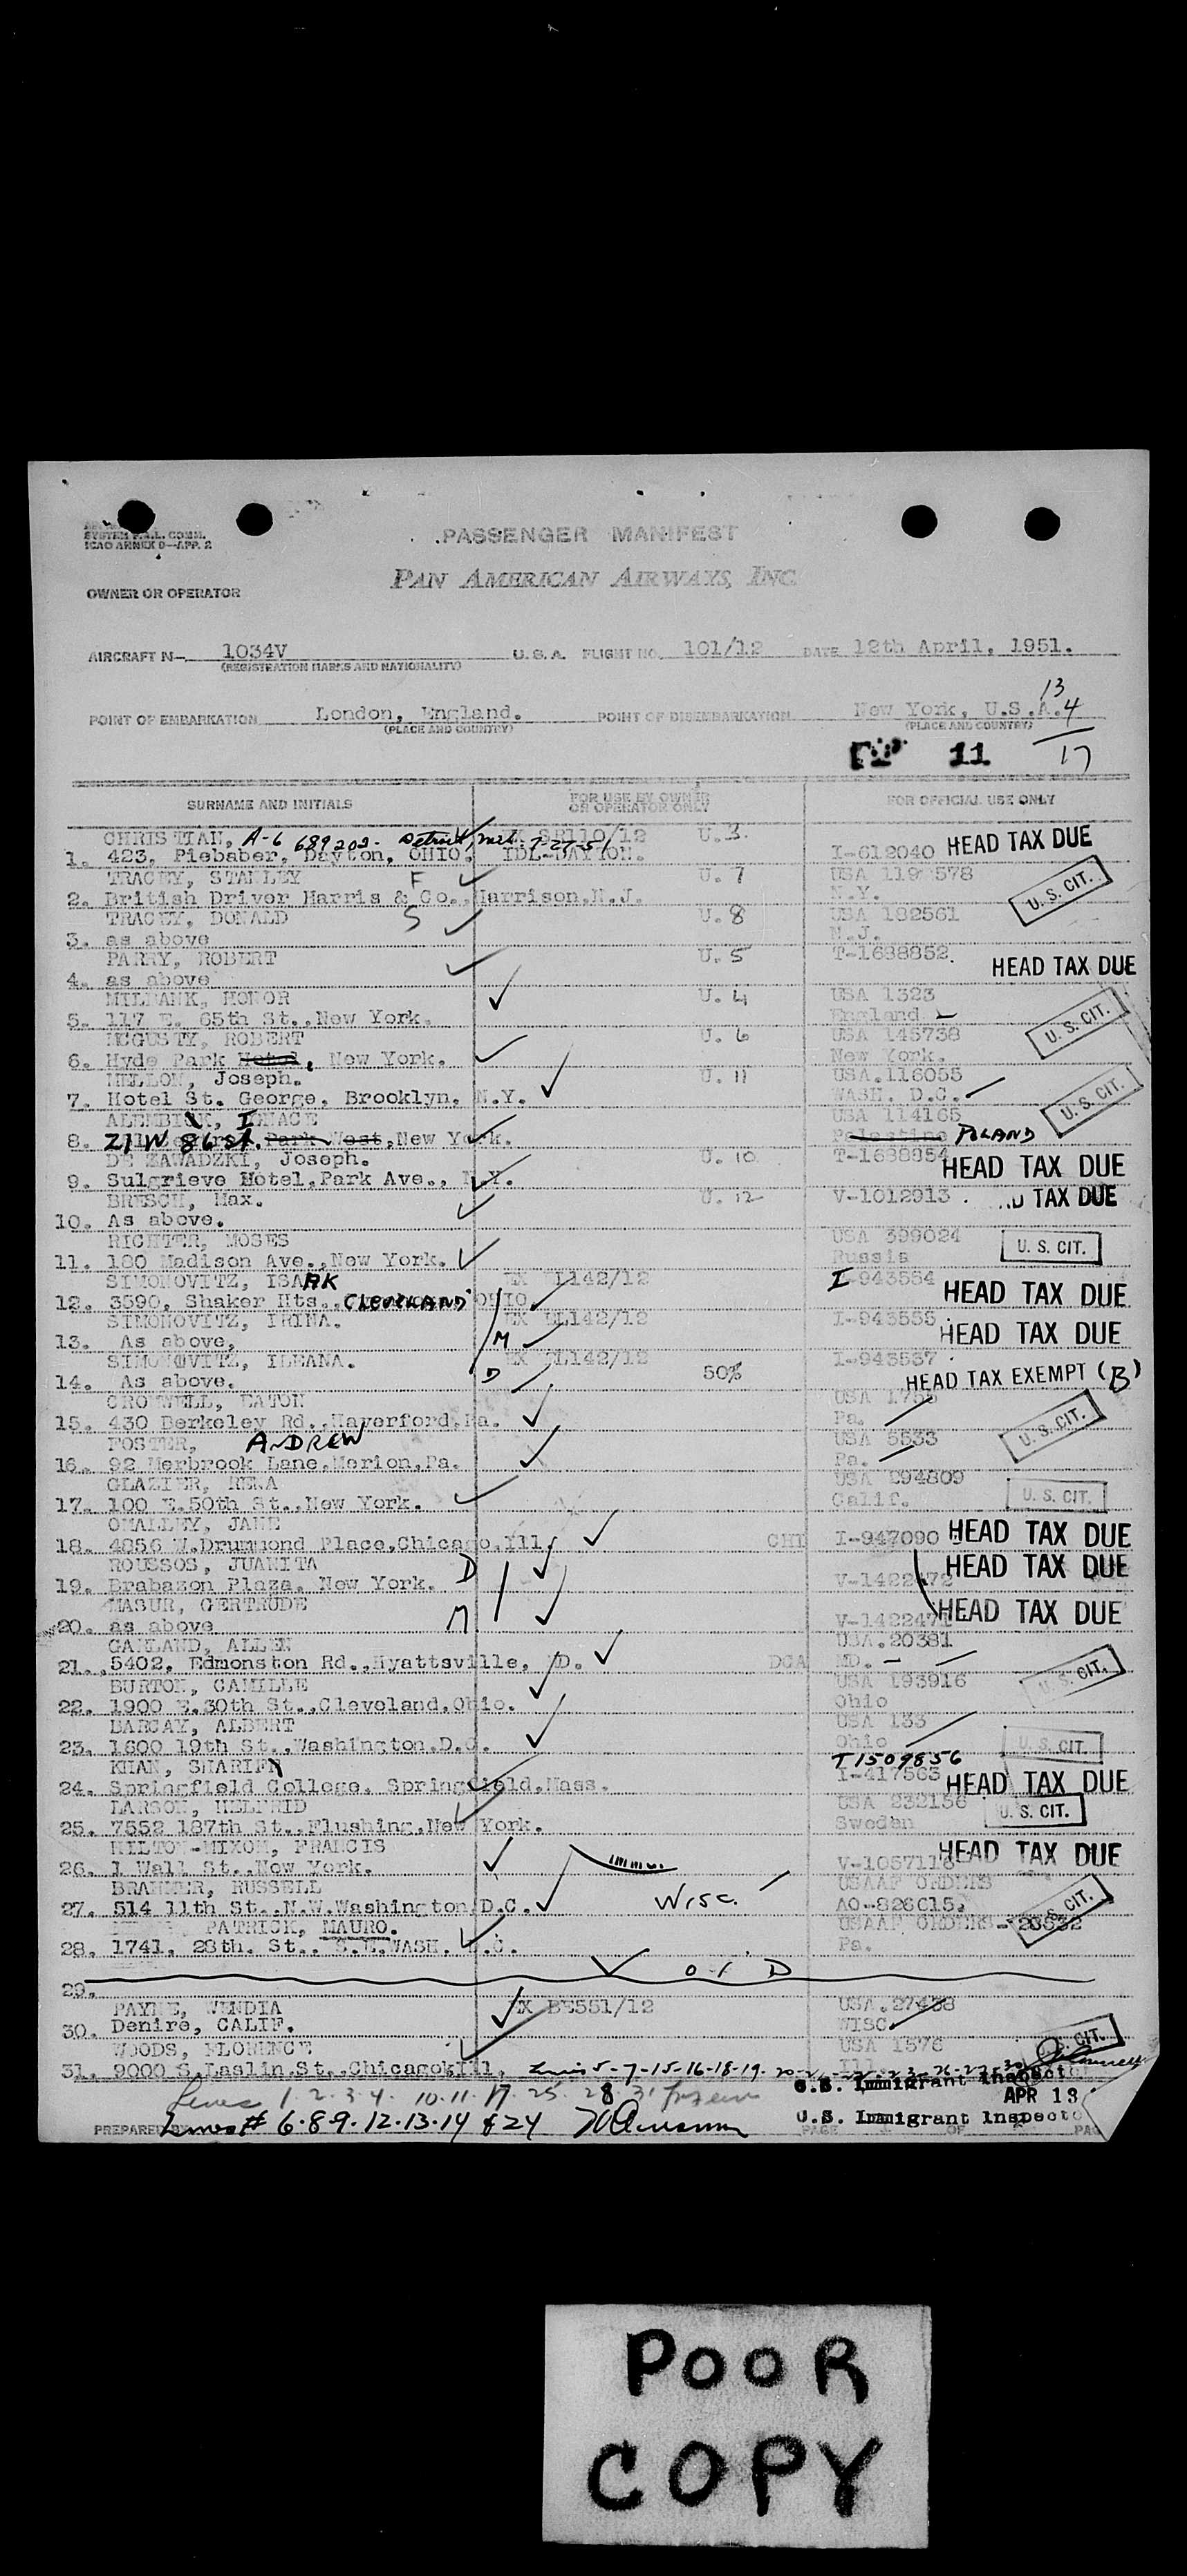 SYSTEM F.A.L. COMM.
ICAO ANNEX 9—APP. 2
PASSENGER MANIFEST
PAN AMERICAN AIRWAYS, INC
OWNER OR OPERATOR
AIRCRAFT N— 1034V U.S.A. FLIGHT NO. 101/12 DATE 12th April, 1951.
(REGISTRATION MARKS AND NATIONALITY)
13
POINT OF EMBARKATION London, England. POINT OF DISEMBARKATION New York, U.S.A. 4
(PLACE AND COUNTRY) (PLACE AND COUNTRY)
11 17
SURNAME AND INITIALS FOR USE BY OWNER OR OPERATOR ONLY FOR OFFICIAL USE ONLY
CHRISTIAN, A-6 689202- Detroit, Mich. 7-27-51 110/12 U.3.
1. 423, Piebaber, Dayton, OHIO. IDL-DAYTON. I-612040 HEAD TAX DUE
TRACEY, STANLEY F U.7 USA 578
2. British Driver Harris & Co., Harrison, N.J. N.Y. U. S. CIT.
TRACEY, DONALD S U.8 USA 192561
3. as above N.J.
PARRY, ROBERT U.5 T-1688852.
4. as above HEAD TAX DUE
MILBANK, HONOR U.4 USA 1323
5. 117 E. 65th St., New York. England U. S. CIT.
MCGUSTY, ROBERT U.6 USA 145738
6. Hyde Park Hotel, New York. New York.
MELLON, Joseph. U.11 USA.116055
7. Hotel St. George, Brooklyn, N.Y. WASH. D.C. U. S. CIT.
IGNACE USA 114165
8. 21 W 86 st. Park West, New York. Palestine POLAND
DE ZAWADZKI, Joseph. U.10 T-1688854
9. Sulgrieve Hotel, Park Ave., N.Y. HEAD TAX DUE
BRESCH, Max. U.12 V-1012913 . TAX DUE
10. As above.
RICHTER, MOSES USA 399024
11. 180 Madison Ave., New York. Russia U. S. CIT.
SIMONOVITZ, ISAAK EX 142/12 I-943554
12. 3590, Shaker Hts., CLEVELAND OHIO. HEAD TAX DUE
SIMONOVITZ, IRINA. EX 142/12 I-943535.
13. As above, M HEAD TAX DUE
SIMONOVITZ, ILEANA. EX 142/12 I-943537
14. As above. D 50% HEAD TAX EXEMPT (B)
CROMWELL, EATON USA 1755
15. 430 Berkeley Rd., Haverford, Pa. Pa. U. S. CIT.
FOSTER, ANDREW USA 5533
16. 92 Merbrook Lane, Merion, Pa. Pa.
GLAZIER, RENA USA 294809
17. 100 E. 50th St., New York. Calif. U. S. CIT.
OMALLEY, JANE
18. 4856 W. Drummond Place, Chicago, Ill. CHI I-947090 HEAD TAX DUE
ROUSSOS, JUANITA D HEAD TAX DUE
19. Brabazon Plaza, New York. V-1422472
MASUR, GERTRUDE M HEAD TAX DUE
20. as above V-1422471
GARLAND, ALLEN USA.20381
21. 5402, Edmonston Rd., Hyattsville, MD. DCA MD.
BURTON, CAMILLE USA 193916 U. S. CIT.
22. 1900 E. 30th St., Cleveland, Ohio. Ohio
BARCAY, ALBERT USA 133
23. 1600 19th St., Washington, D.C. Ohio U. S. CIT.
KHAN, SHARIFF T1509856
24. Springfield College, Springfield, Mass. I-417563 HEAD TAX DUE
LARSON, HELFRID USA 232156
25. 7552 187th St., Flushing, New York. Sweden U. S. CIT.
HILTON-MIXON, FRANCIS
26. 1 Wall St., New York. V-1057118 HEAD TAX DUE
RUSSELL USAAF ORDERS
27. 514 11th St., N.W. Washington, D.C. Wisc. AO-826015. U. S. CIT.
PATRICK, MAURO. USAAF ORDERS
28. 1741, 28th. St., S.E. WASH. D.C. Pa.
29.
PAYNE, WENDIA EX BE551/12 USA.27438
30. Denire, CALIF. WISC
WOODS, FLORENCE USA 1576
31. 9000 S. Laslin St., Chicago, Ill. Ill. CIT.
Lines 5-7-15-16-18-19-20
Lines 1-2-3-4 10-11-17 25-28-31
U.S. Immigrant Inspector
APR 13
Lines # 6-8-9-12-13-14 & 24 U.S. Immigrant Inspector
PREPARED PAGE OF
POOR
COPY